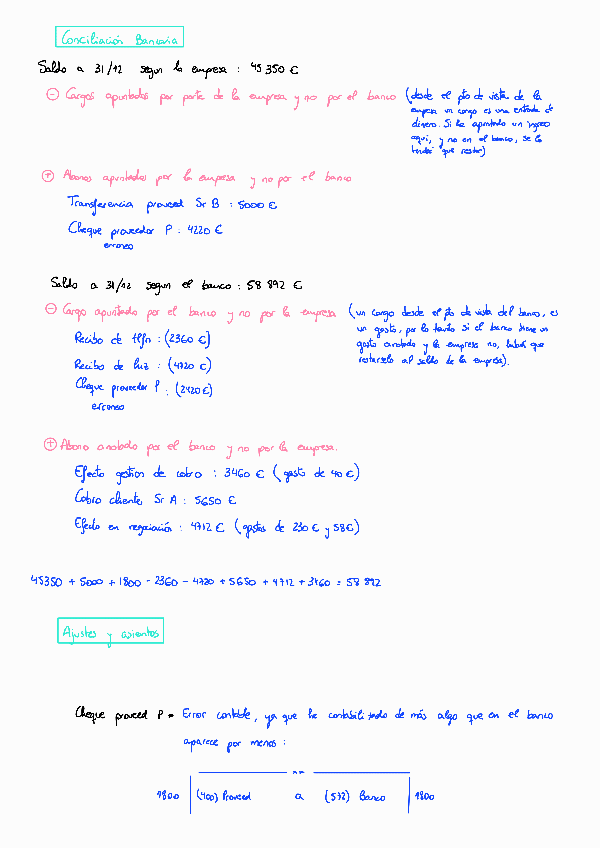 Conciliación Bancaria
Saldo a 31/12 segun la empresa : 45 350 €
⊖ Cargos apuntados por parte de la empresa y no por el banco (desde el pto de vista de la
empresa un cargo es una entrada de
dinero. Si ha apuntado un ingreso
aquí, y no en el banco, se lo
tendré que restar)
⊕ Abonos apuntados por la empresa y no por el banco
Transferencia proveed Sr B : 5000 €
Cheque proveedor P : 4220 €
erroneo
Saldo a 31/12 segun el banco : 58 892 €
⊖ Cargo apuntado por el banco y no por la empresa (un cargo desde el pto de vista del banco, es
un gasto, por lo tanto si el banco tiene un
gasto anotado y la empresa no, habrá que
restarselo al saldo de la empresa).
Recibo de tlfn : (2360 €)
Recibo de luz : (4720 €)
Cheque proveedor P : (2420 €)
erroneo
⊕ Abono anotado por el banco y no por la empresa.
Efecto gestion de cobro : 3460 € (gasto de 40 €)
Cobro cliente Sr A : 5650 €
Efecto en negociación : 4712 € (gastos de 230 € y 58€)
45350 + 5000 + 1800 - 2360 - 4720 + 5650 + 4712 + 3460 = 58 892
Ajustes y asientos
Cheque proveed P = Error contable, ya que he contabilizado de más algo que en el banco
aparece por menos :
1800 (400) Proveed a (572) Banco 1800